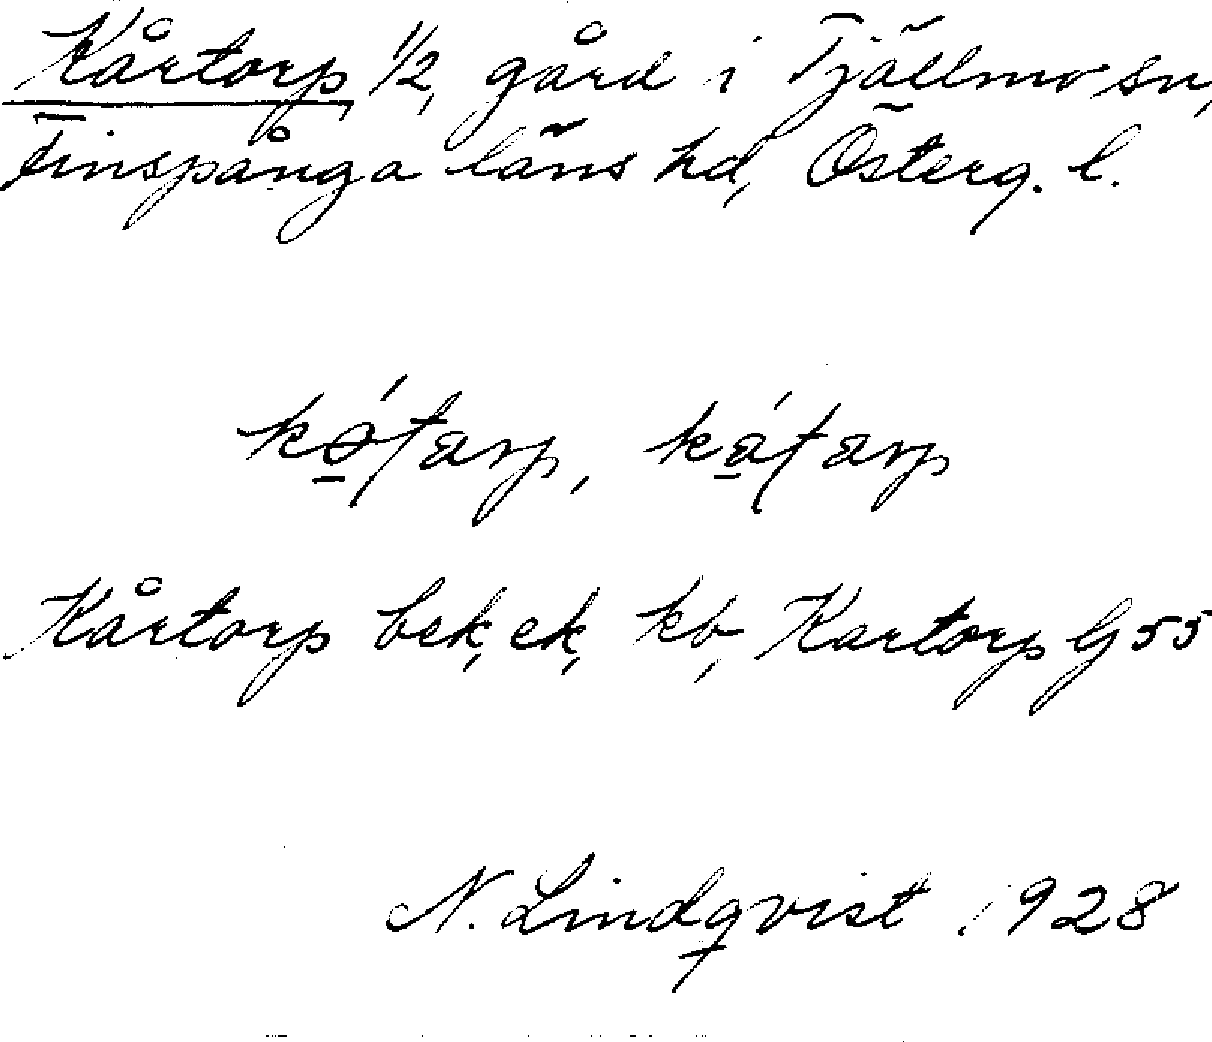 Kårtorp 1/2, gård i Tjällmo sn,
Finspånga läns hd, Österg. l.
Kårtorp bek, ek, kb, Kartorp G 55
N. Lindqvist 1928